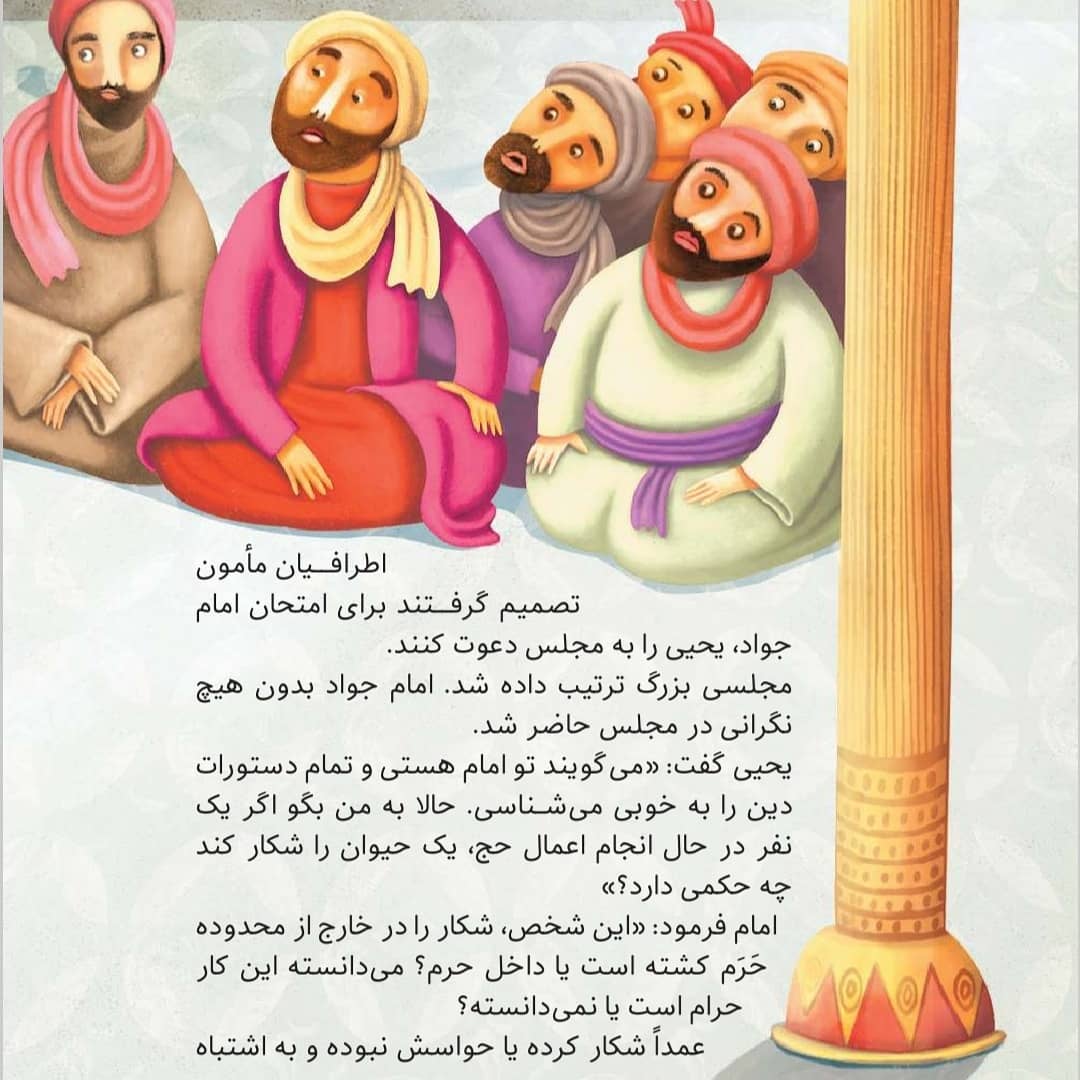 اطرافیان مأمون
تصمیم گرفتند برای امتحان امام
جواد، یحیی را به مجلس دعوت کنند.
مجلسی بزرگ ترتیب داده شد. امام جواد بدون هیچ
نگرانی در مجلس حاضر شد.
یحیی گفت: «می‌گویند تو امام هستی و تمام دستورات
دین را به خوبی می‌شناسی. حالا به من بگو اگر یک
نفر در حال انجام اعمال حج، یک حیوان را شکار کند
چه حکمی دارد؟»
امام فرمود: «این شخص، شکار را در خارج از محدوده
حَرَم کشته است یا داخل حرم؟ می‌دانسته این کار
حرام است یا نمی‌دانسته؟
عمداً شکار کرده یا حواسش نبوده و به اشتباه